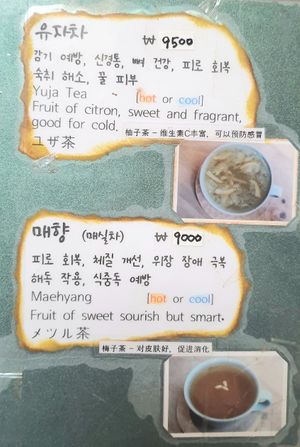 유자차 ₩ 9500
감기 예방, 신경통, 뼈 건강, 피로 회복
숙취 해소, 꿀 피부
Yuja Tea [hot or cool]
Fruit of citron, sweet and fragrant,
good for cold.
ユザ茶
柚子茶 - 维生素C丰富, 可以预防感冒
매향 (매실차) ₩ 9000
피로 회복, 체질 개선, 위장 장애 극복
해독 작용, 식중독 예방
Maehyang [hot or cool]
Fruit of sweet sourish but smart.
メツル茶
梅子茶 - 对皮肤好, 促进消化